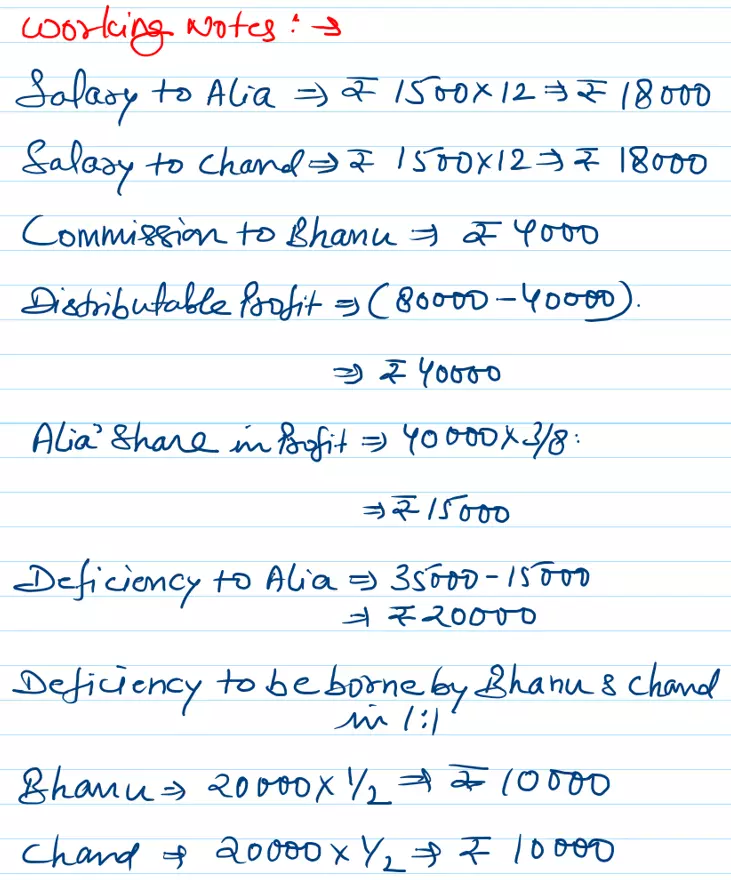 Working Notes: →
Salary to Alia ⇒ ₹ 1500×12 ⇒ ₹ 18000
Salary to Chand ⇒ ₹ 1500×12 ⇒ ₹ 18000
Commission to Bhanu ⇒ ₹ 4000
Distributable Profit ⇒ (80000-40000).
⇒ ₹ 40000
Alia' Share in Profit ⇒ 40000×3/8:
⇒ ₹ 15000
Deficiency to Alia ⇒ 35000-15000
⇒ ₹ 20000
Deficiency to be borne by Bhanu & Chand
in 1:1
Bhanu ⇒ 20000×1/2 ⇒ ₹ 10000
Chand ⇒ 20000×1/2 ⇒ ₹ 10000